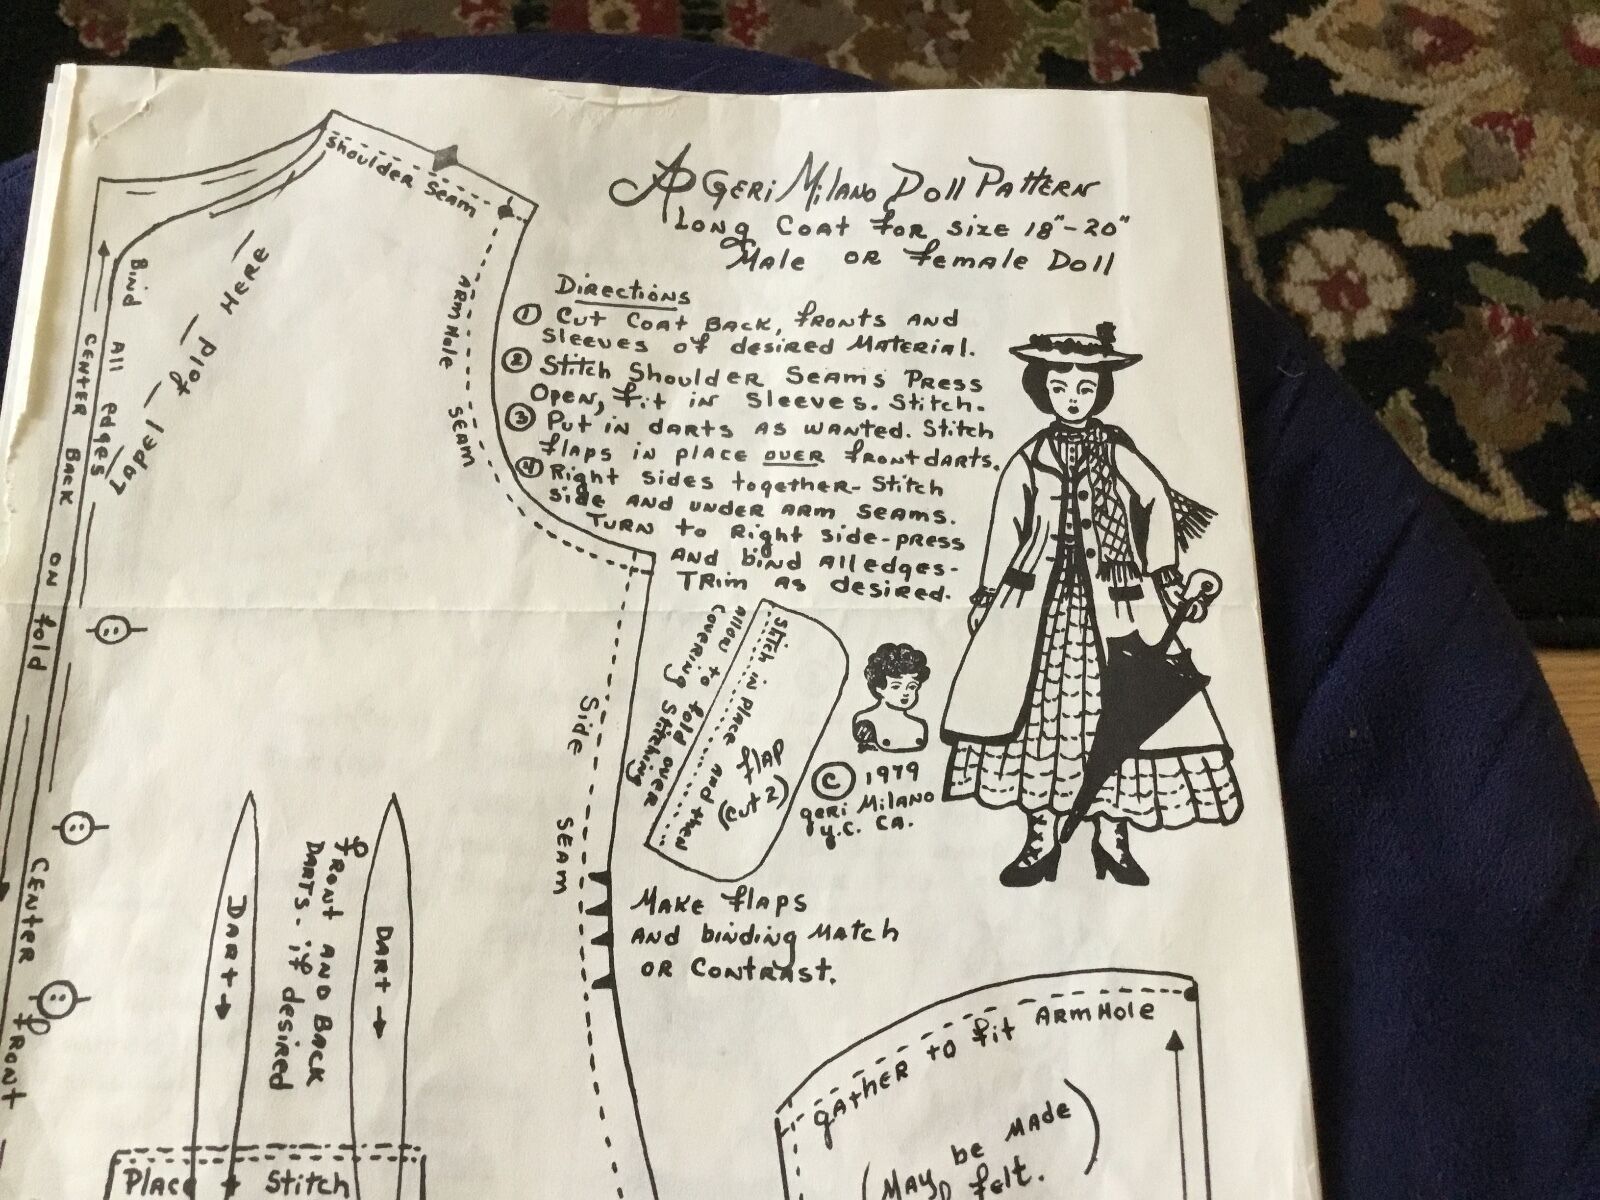 A Geri Milano Doll Pattern
Long Coat for size 18"-20"
Male or female Doll
Directions
① Cut Coat Back, fronts and
Sleeves of desired Material.
② Stitch Shoulder Seams Press
Open, fit in Sleeves. Stitch.
③ Put in darts as wanted. Stitch
flaps in place over front darts.
④ Right sides together- Stitch
side and under arm seams.
Turn to Right side-press
and bind all edges-
Trim as desired.
Shoulder Seam
Arm Hole
Seam
Bind All Edges
Lapel fold Here
Center Back on fold
Center front
Side
Seam
Stitch in place and then
Allow to fold over
Covering Stitching
flap
(cut 2)
© 1979
Geri Milano
Y.C. CA.
Make flaps
and binding Match
or Contrast.
Dart →
front and Back
Darts - if desired
Dart →
Place + Stitch
gather to fit Arm Hole
(May be made
felt.)